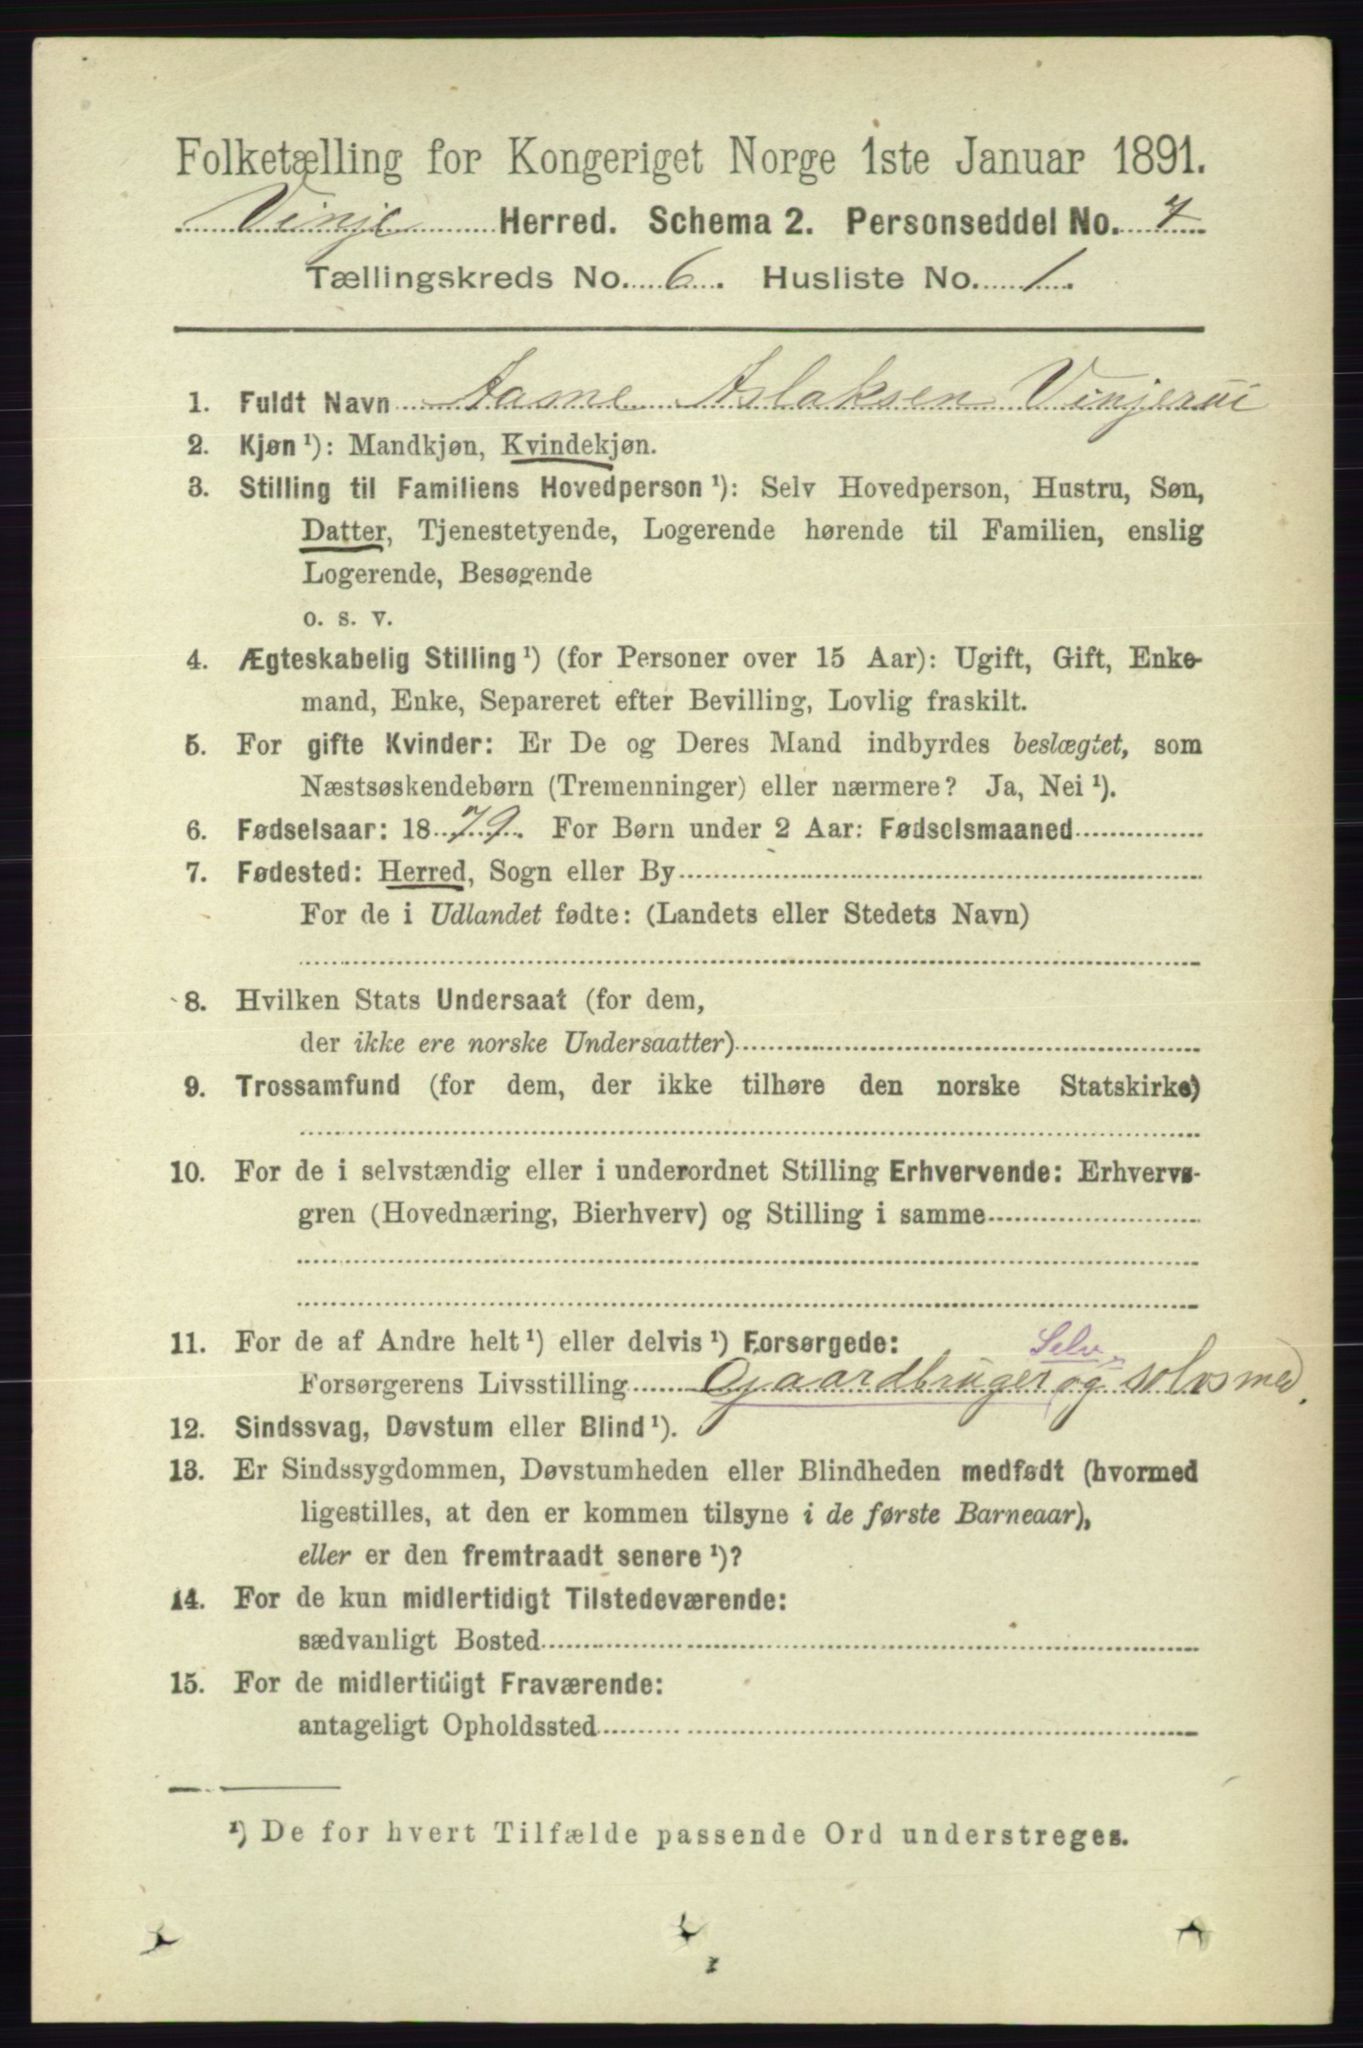 Folketælling for Kongeriget Norge 1ste Januar 1891.
Vinje Herred. Schema 2. Personseddel No. 7
Tællingskreds No. 6. Husliste No. 1.
1. Fuldt Navn Aasne Aslaksen Vinjerui
2. Kjøn ¹): Mandkjøn, Kvindekjøn.
3. Stilling til Familiens Hovedperson ¹): Selv Hovedperson, Hustru, Søn,
Datter, Tjenestetyende, Logerende hørende til Familien, enslig
Logerende, Besøgende
o. s. v.
4. Ægteskabelig Stilling ¹) (for Personer over 15 Aar): Ugift, Gift, Enke-
mand, Enke, Separeret efter Bevilling, Lovlig fraskilt.
5. For gifte Kvinder: Er De og Deres Mand indbyrdes beslægtet, som
Næstsøskendebørn (Tremenninger) eller nærmere? Ja, Nei ¹).
6. Fødselsaar: 1879. For Børn under 2 Aar: Fødselsmaaned
7. Fødested: Herred, Sogn eller By
For de i Udlandet fødte: (Landets eller Stedets Navn)
8. Hvilken Stats Undersaat (for dem,
der ikke ere norske Undersaatter)
9. Trossamfund (for dem, der ikke tilhøre den norske Statskirke)
10. For de i selvstændig eller i underordnet Stilling Erhvervende: Erhvervs-
gren (Hovednæring, Bierhverv) og Stilling i samme
11. For de af Andre helt ¹) eller delvis ¹) Forsørgede:
Selv
Forsørgerens Livsstilling Gaardbruger og sølvsmed.
12. Sindssvag, Døvstum eller Blind ¹).
13. Er Sindssygdommen, Døvstumheden eller Blindheden medfødt (hvormed
ligestilles, at den er kommen tilsyne i de første Barneaar),
eller er den fremtraadt senere ¹)?
14. For de kun midlertidigt Tilstedeværende:
sædvanligt Bosted
15. For de midlertidigt Fraværende:
antageligt Opholdssted
¹) De for hvert Tilfælde passende Ord understreges.